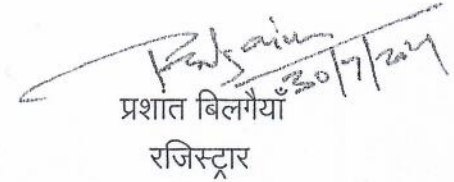 30/7/2021
प्रशांत बिलगैयाँ
रजिस्ट्रार